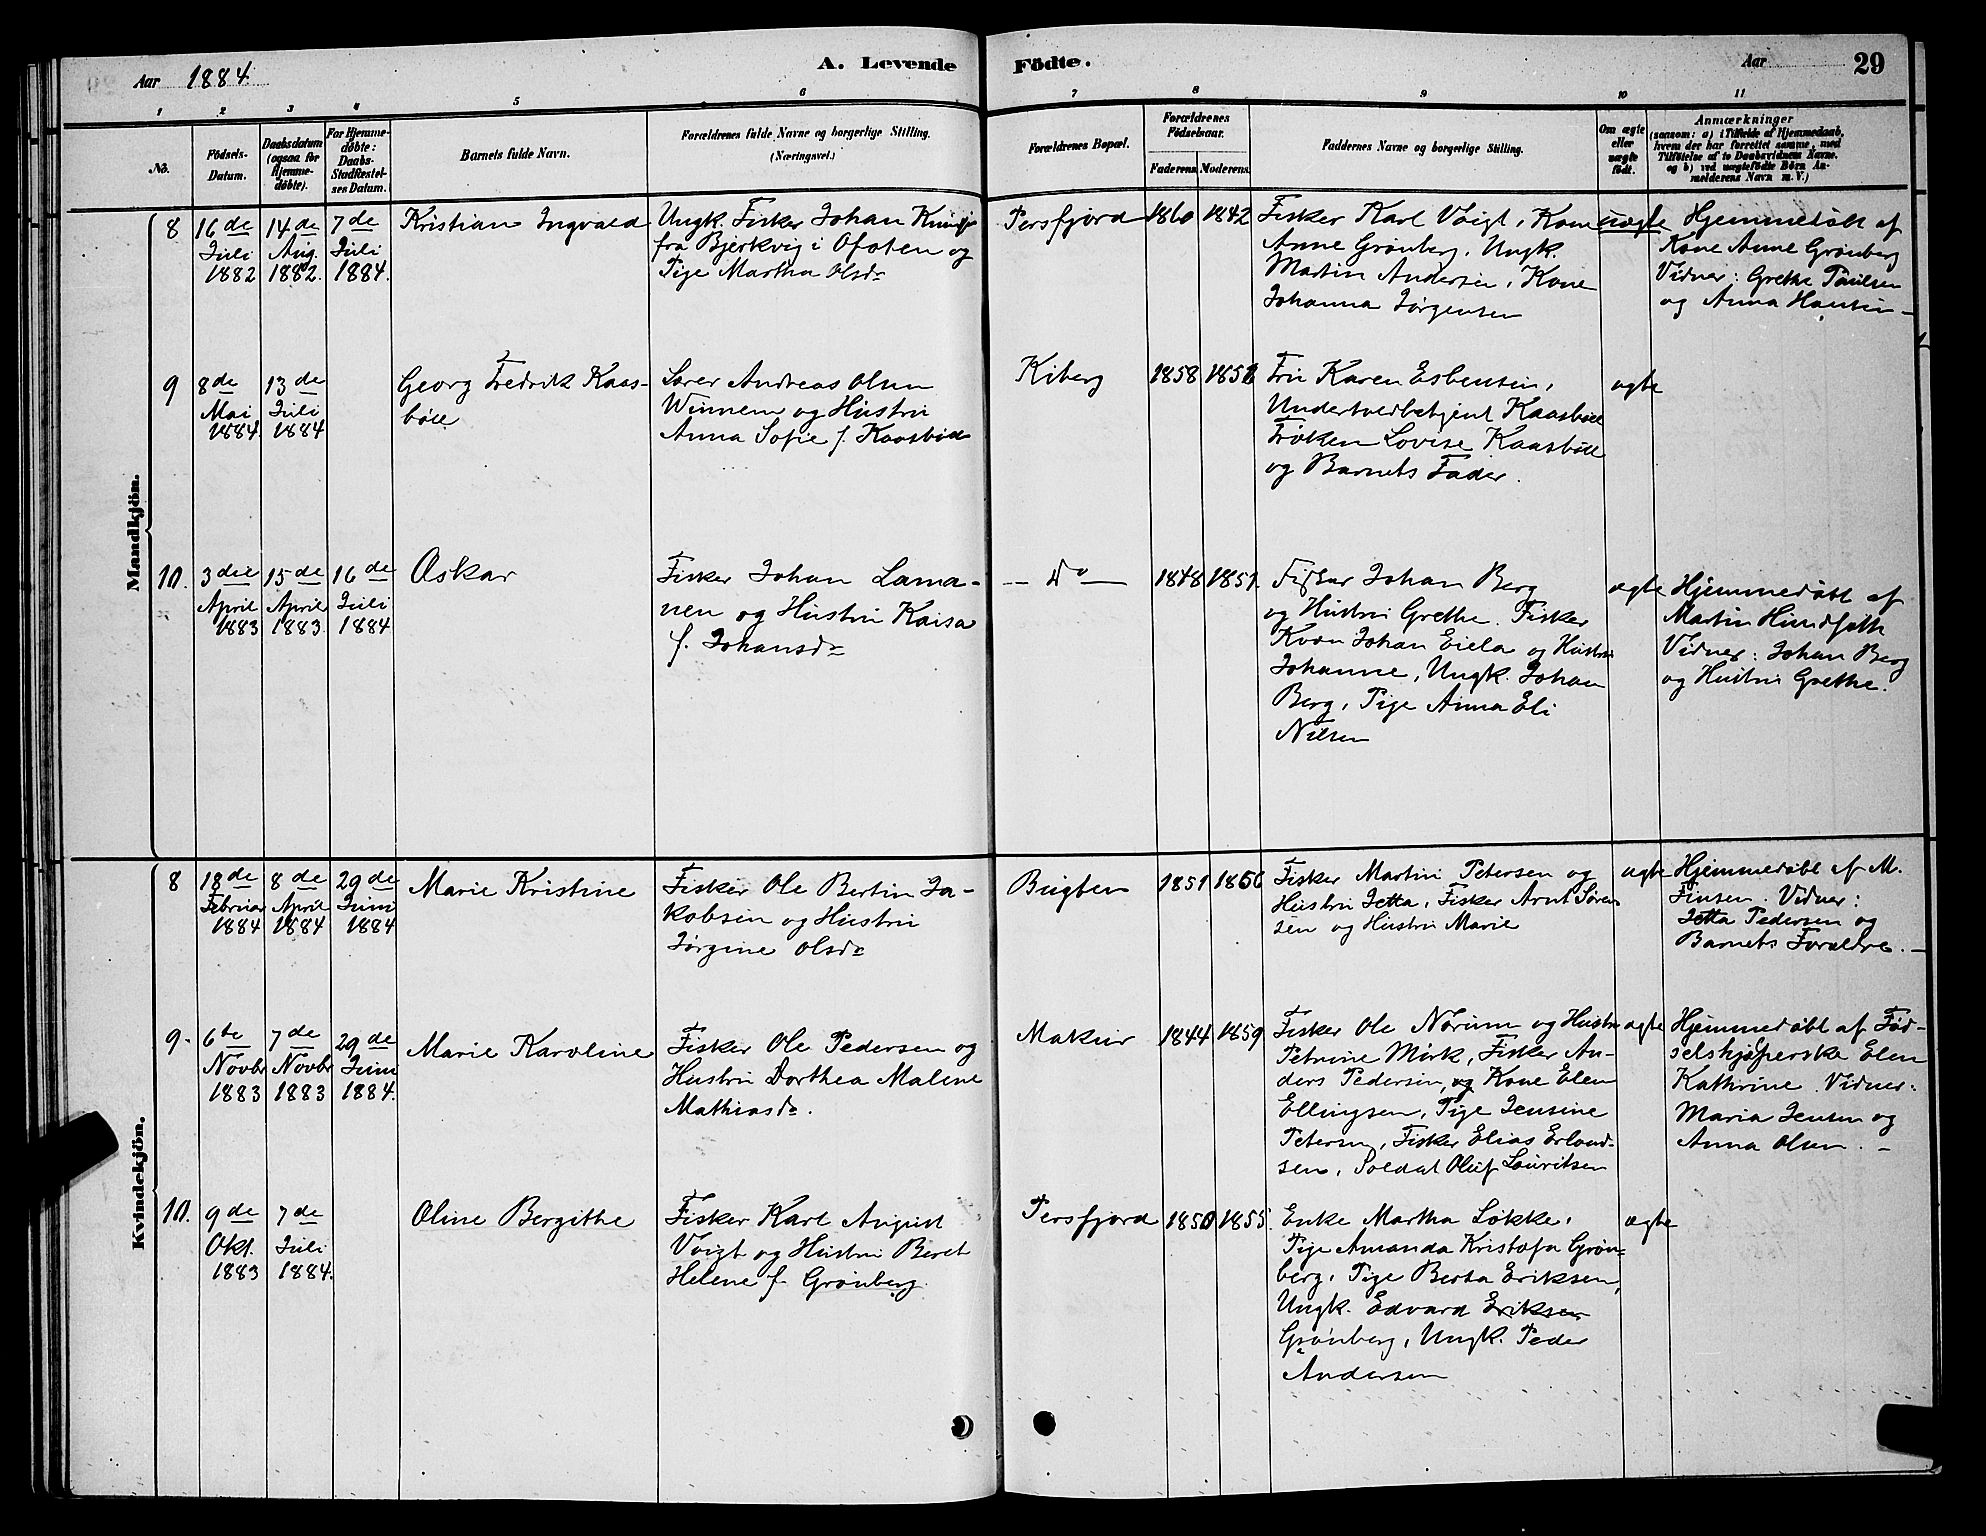 Aar 1884.
A. Levende Födte.
Aar 29
1 2 3 4 5 6 7 8 9 10 11
No.
Födsels-Datum.
Daabsdatum (ogsaa for Hjemmedöbte).
For Hjemmedöbte: Daabs-Stadfæstelses Datum.
Barnets fulde Navn.
Forældrenes fulde Navne og borgerlige Stilling.
(Næringsvei.)
Forældrenes Bopæl.
Forældrenes Födselsaar.
Faderens. Moderens.
Faddernes Navne og borgerlige Stilling.
Om ægte eller uægte födt.
Anmærkninger
(saasom: a) i Tilfælde af Hjemmedaab, hvem der har forrettet samme, med Tilföielse af to Daabsvidners Navne. og b) ved uægtefödte Börn Anmelderens Navn m. V.)
Mandkjön.
8
16de Juli 1882
14de Aug. 1882.
7de Juli 1884.
Kristian Ingvald
Ungk. Fisker Johan
fra Bjerkvig i Ofoten og
Pige Martha Olsdr
Persfjord
1860 1842
Fisker Karl Voigt, Kone
Anne Grønberg, Ungk.
Martin Andersen, Kone
Johanna Jørgensen
uægte
Hjemmedøbt af
Kone Anne Grønberg
Vidner: Grethe Paulsen
og Anna Hansen –
9
8de Mai 1884.
13de Juli 1884
Georg Fredrik Kaas-
bøll
Lærer Andreas Olsen
Winnem og Hustru
Anna Sofie f. Kaasbøll
Kiberg
1858
Fru Karen Esbensen,
Undertoldbetjent Kaasbøll
Frøken Lovise Kaasbøll
og Barnets Fader.
ægte
10.
3die April 1883
15de April 1883.
16de Juli 1884
Oskar
Fisker Johan Lama-
nen og Hustru Kaisa
f. Johansdr
– Do –
1848 1851.
Fisker Johan Berg
og Hustru Grethe. Fisker
Kvæn Johan Eiela og Hustru
Johanne, Ungk. Johan
Berg, Pige Anna Eli
Nilsen
ægte
Hjemmedøbt af
Martin Hundseth
Vidner: Johan Berg
og Hustru Grethe.
Kvindekjön.
8
18de Februar 1884
8de April 1884
29de Juni 1884
Marie Kristine
Fisker Ole Bertin Ja-
kobsen og Hustru
Jørgine Olsdr
Bugten
1851 1856
Fisker Martin Petersen og
Hustru Jetta, Fisker Arnt Søren-
sen og Hustru Marie
ægte
Hjemmedøbt af M.
Finsen. Vidner:
Jetta Pedersen og
Barnets Forældre. –
9.
6te Novbr 1883
7de Novbr 1883
29de Juni 1884.
Marie Karoline
Fisker Ole Pedersen og
Hustru Dorthea Malene
Mathiasdr.
Makur
1844 1859
Fisker Ole Norum og Hustru
Petrine Mörk, Fisker An-
ders Pedersen, og Kone Elen
Ellingsen, Pige Jensine
Petersen, Fisker Elias Erland-
sen, Soldat Oluf Lauritsen
ægte
Hjemmedøbt af Fød-
selshjælperske Elen
Kathrine. Vidner:
Maria Jensen og
Anna Olsen. –
10.
9de Okt. 1883
7de Juli 1884.
Oline Bergithe
Fisker Karl August
Voigt og Hustru Beret
Helene f. Grønberg.
Persfjord
1850 1855.
Enke Martha Løkke,
Pige Amanda Kristofa Grøn-
berg, Pige Berta Eriksen,
Ungk. Edvard Eriksen
Grønberg, Ungk. Peder
Andersen
ægte